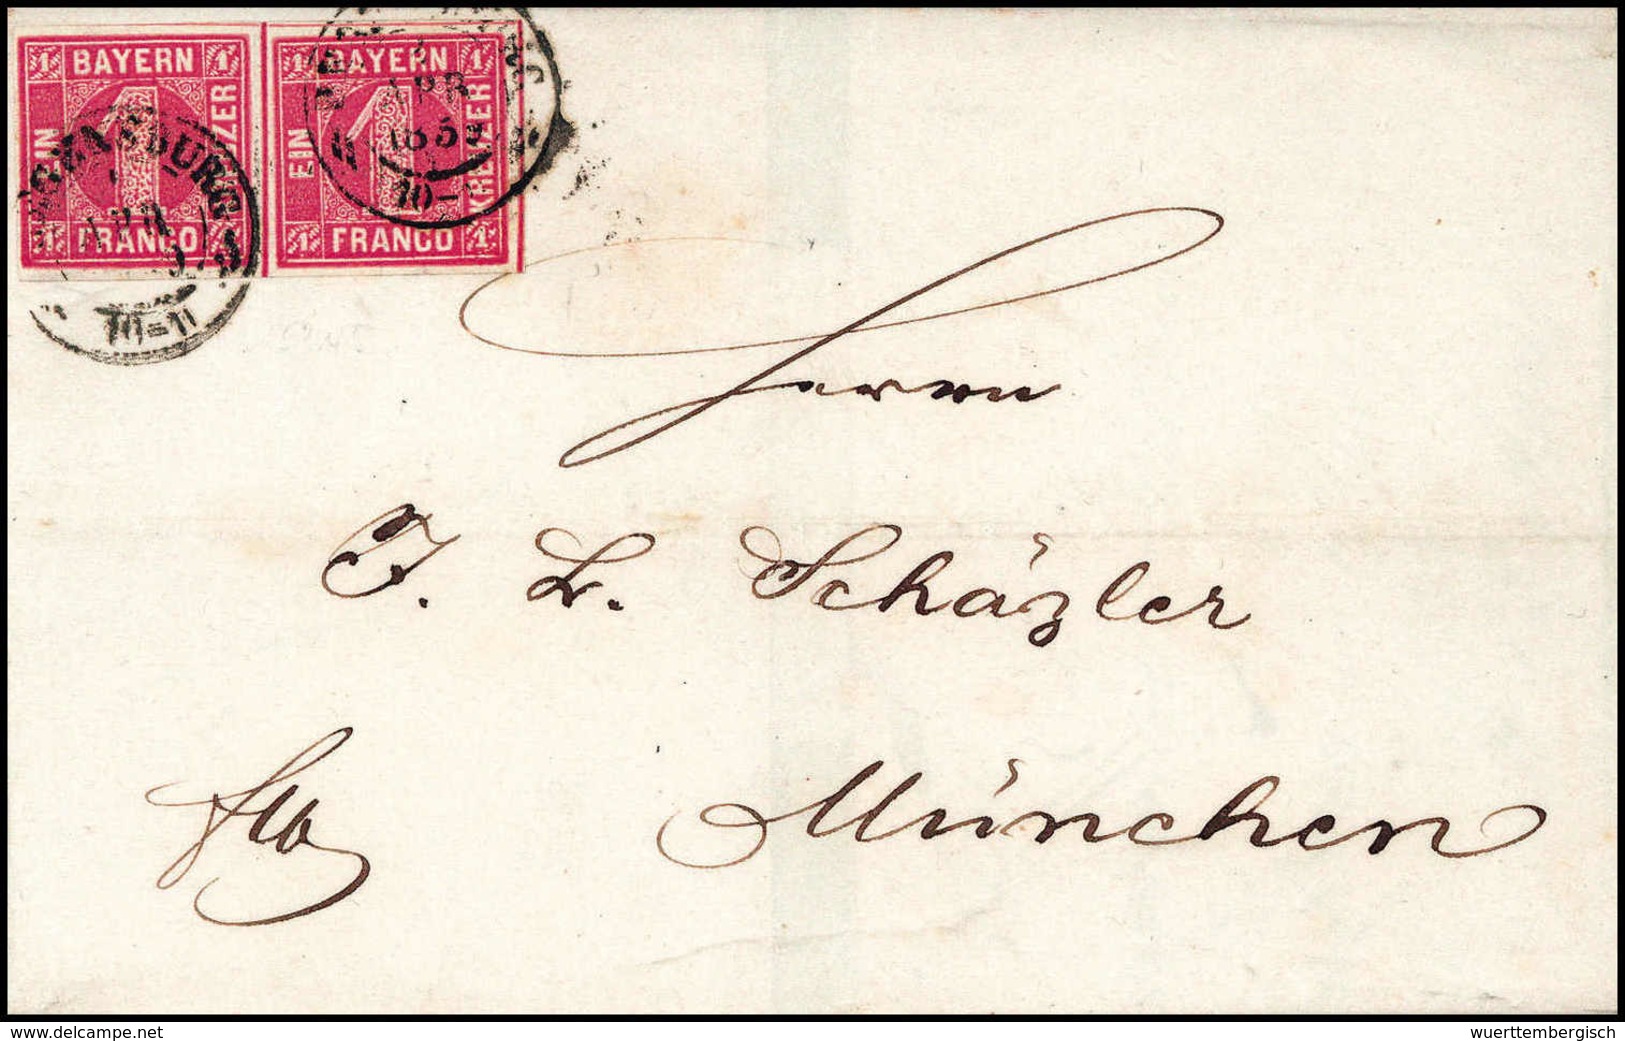 1 BAYERN 1
EIN KREUZER
1 FRANCO 1
1 BAYERN 1
EIN KREUZER
1 FRANCO 1
REGENSBURG
APR
10-11
APR
1859
10-
Herrn
J. L. Schäzler
München
fco
www.delcampe.net
wuerttembergisch